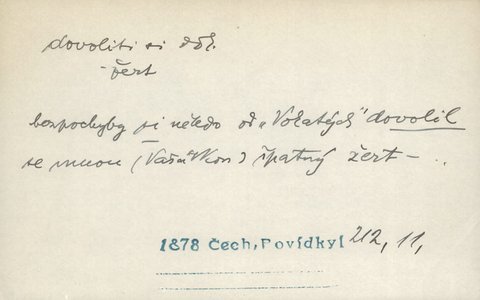 dovoliti si
žert
bezpochyby si někdo od „Vokatých" dovolil
se mnou špatný žert –
1878 Čech, Povídky I 212, 11,